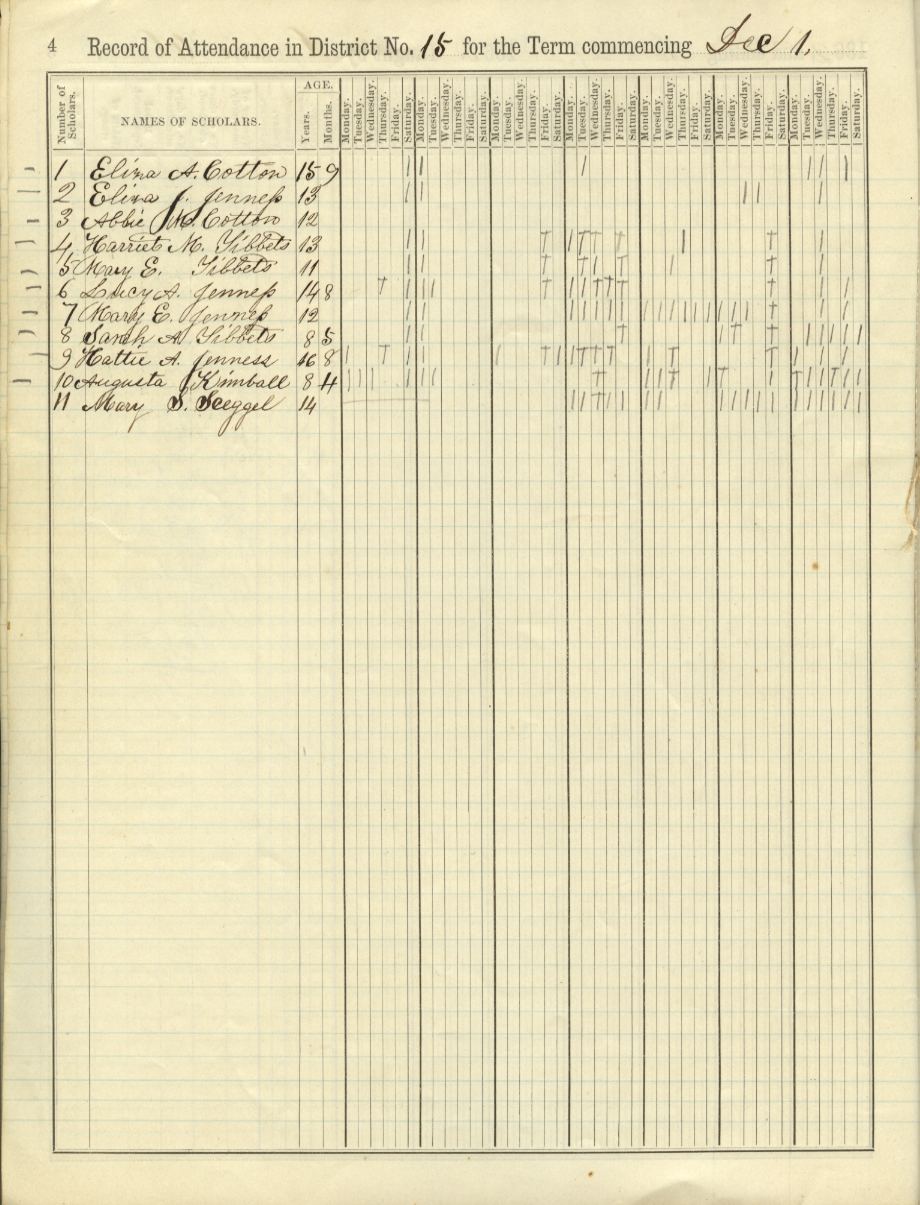 4 Record of Attendance in District No. 15 for the Term commencing Dec 1.
Number of Scholars. NAMES OF SCHOLARS. AGE. Years. Months. Monday. Tuesday. Wednesday. Thursday. Friday. Saturday. Monday. Tuesday. Wednesday. Thursday. Friday. Saturday. Monday. Tuesday. Wednesday. Thursday. Friday. Saturday. Monday. Tuesday. Wednesday. Thursday. Friday. Saturday. Monday. Tuesday. Wednesday. Thursday. Friday. Saturday. Monday. Tuesday. Wednesday. Thursday. Friday. Saturday. Monday. Tuesday. Wednesday. Thursday. Friday. Saturday.
1 Eliza A. Cotton 15 9
2 Eliza J. Jenness 13
3 Abbie M. Cotton 12
4 Harriet M. Tibbets 13
5 Mary E. Tibbets 11
6 Lucy A. Jenness 14 8
7 Mary E. Jenness 12
8 Sarah A. Tibbets 8 5
9 Hattie A. Jenness 16 8
10 Augusta Kimball 8 4
11 Mary S. Seeggel 14